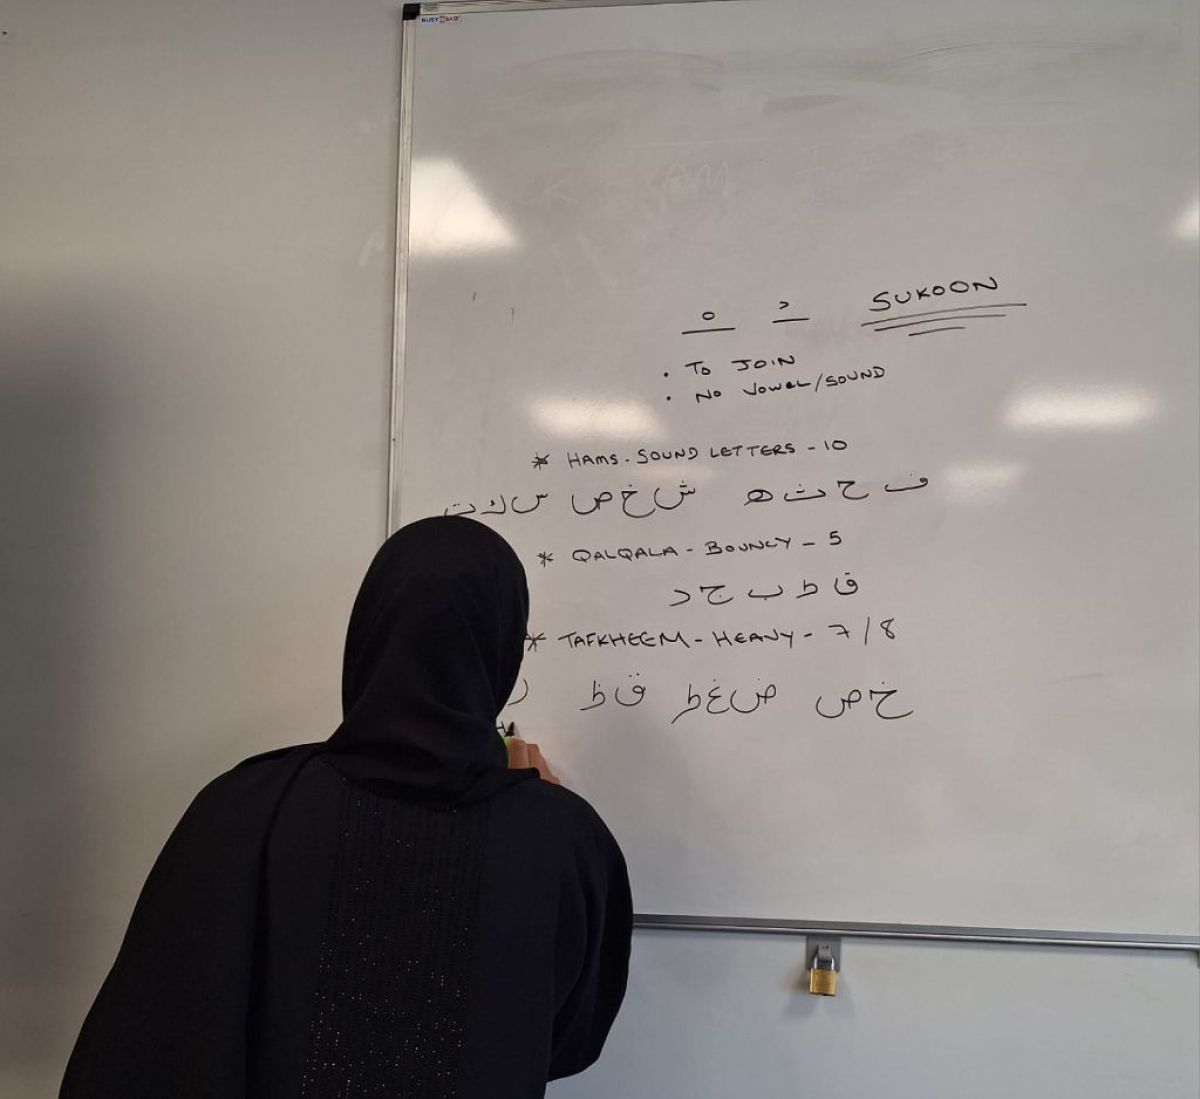 SUKOON
• TO JOIN
• NO VOWEL/SOUND
* HAMS - SOUND LETTERS - 10
ف ح ث ه ش خ ص س ك ت
* QALQALA - BOUNCY - 5
ق ط ب ج د
* TAFKHEEM - HEAVY - 7/8
خ ص ض غ ط ق ظ ر